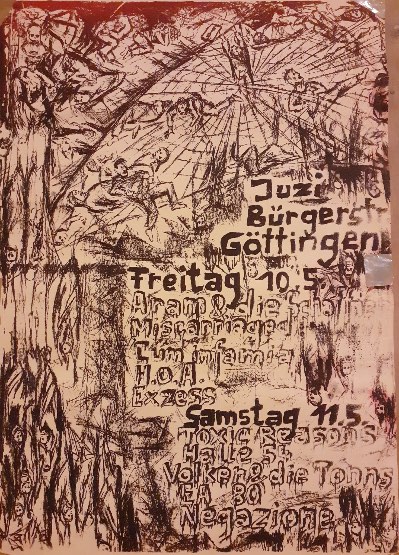 Juzi
Bürgerstr
Göttingen
Freitag 10.5.
Aram & die
Miscarriaged
Cum infamia
H.O.A.
Exzess
Samstag 11.5.
Toxic Reasons
Halle 54
Volker & die Tohns
EA 80
Negazione